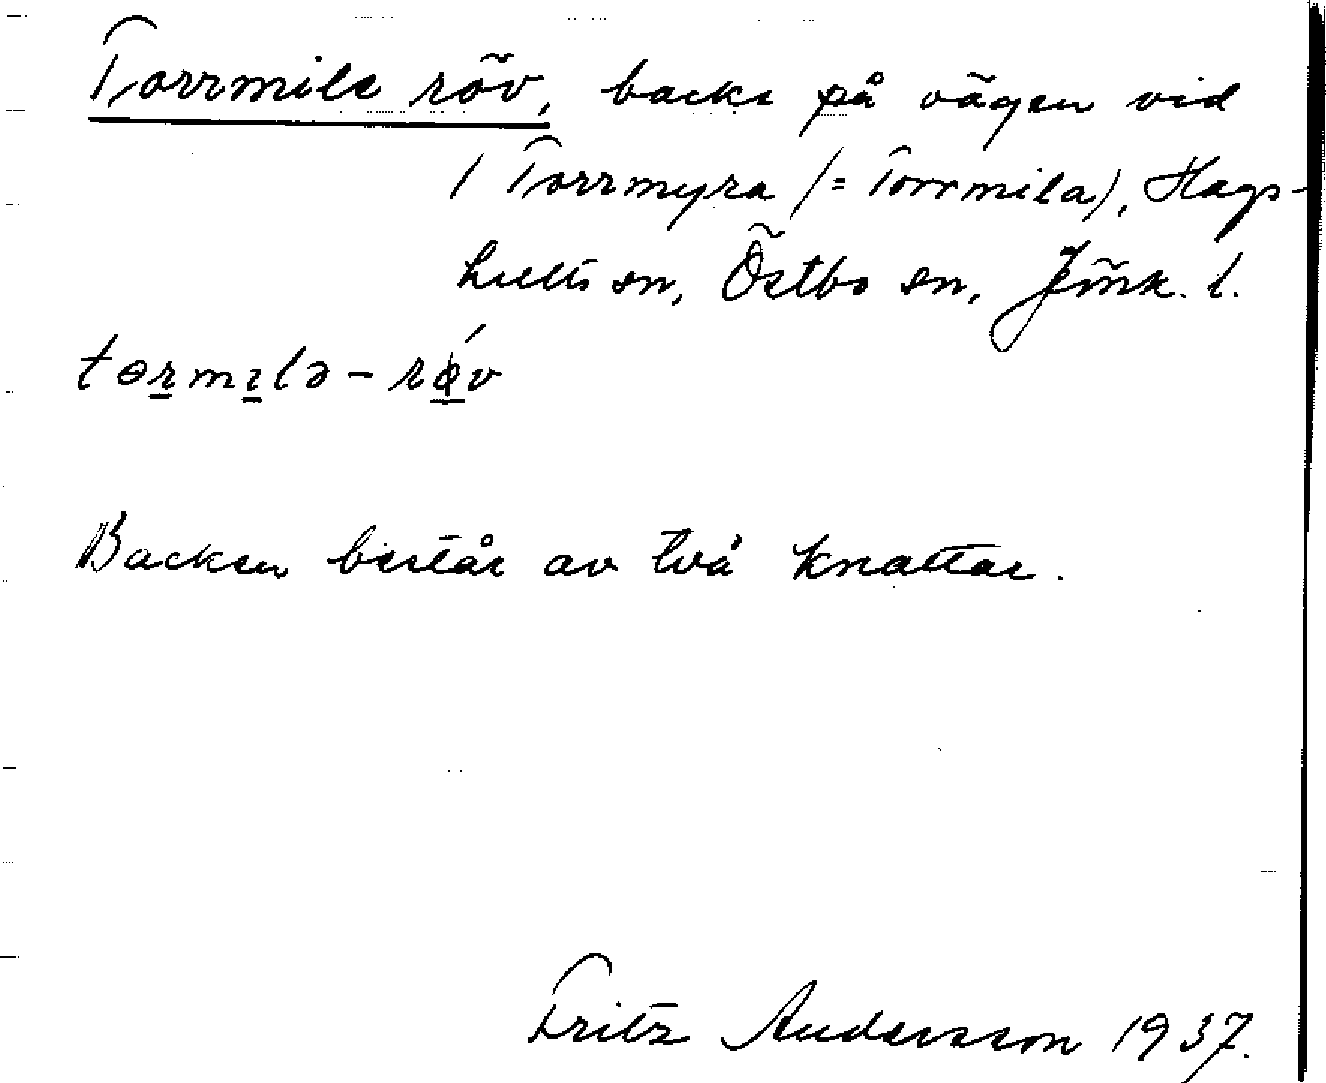 Torrmile röv, backe på vägen vid
/ Torrmyra (= Torrmila), Hags-
hults sn, Östbo sn, Jönk. l.
tɵrmɪlə - rǿv
Backen består av två knattar.
Fritz Andersson 1937.